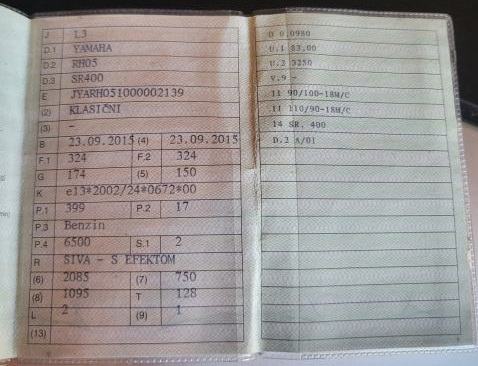 J L3
D.1 YAMAHA
D.2 RH05
D.3 SR400
E JYARH051000002139
(2) KLASIČNI
(3) -
B 23.09.2015 (4) 23.09.2015
F.1 324 F.2 324
G 174 (5) 150
K e13*2002/24*0672*00
P.1 399 P.2 17
P.3 Benzin
P.4 6500 S.1 2
R SIVA - S EFEKTOM
(6) 2085 (7) 750
(8) 1095 T 128
L 2 (9) 1
(13)
O 0,0980
U.1 83,00
U.2 3250
V.9 -
11 90/100-18M/C
11 110/90-18M/C
14 SR. 400
D.2 A/01